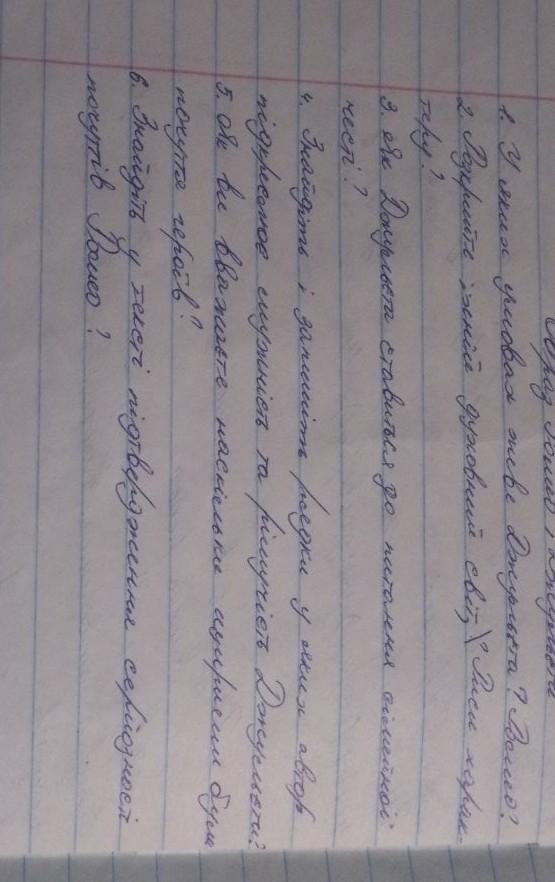 Образ Ромео і Джульєтти
1. У яких умовах живе Джульєта? Ромео?
2. Розкрийте їхній духовний світ, \ Риси харак-
теру?
3. Як Джульєта ставиться до питання сімейної
честі?
4. Знайдіть і запишіть рядки у яких автор
підкреслює мужність та рішучість Джульєти?
5. Як ви вважаєте наскільки щирими були
почуття героїв?
6. Знайдіть у тексті підтвердження серйозності
почуттів Ромео?